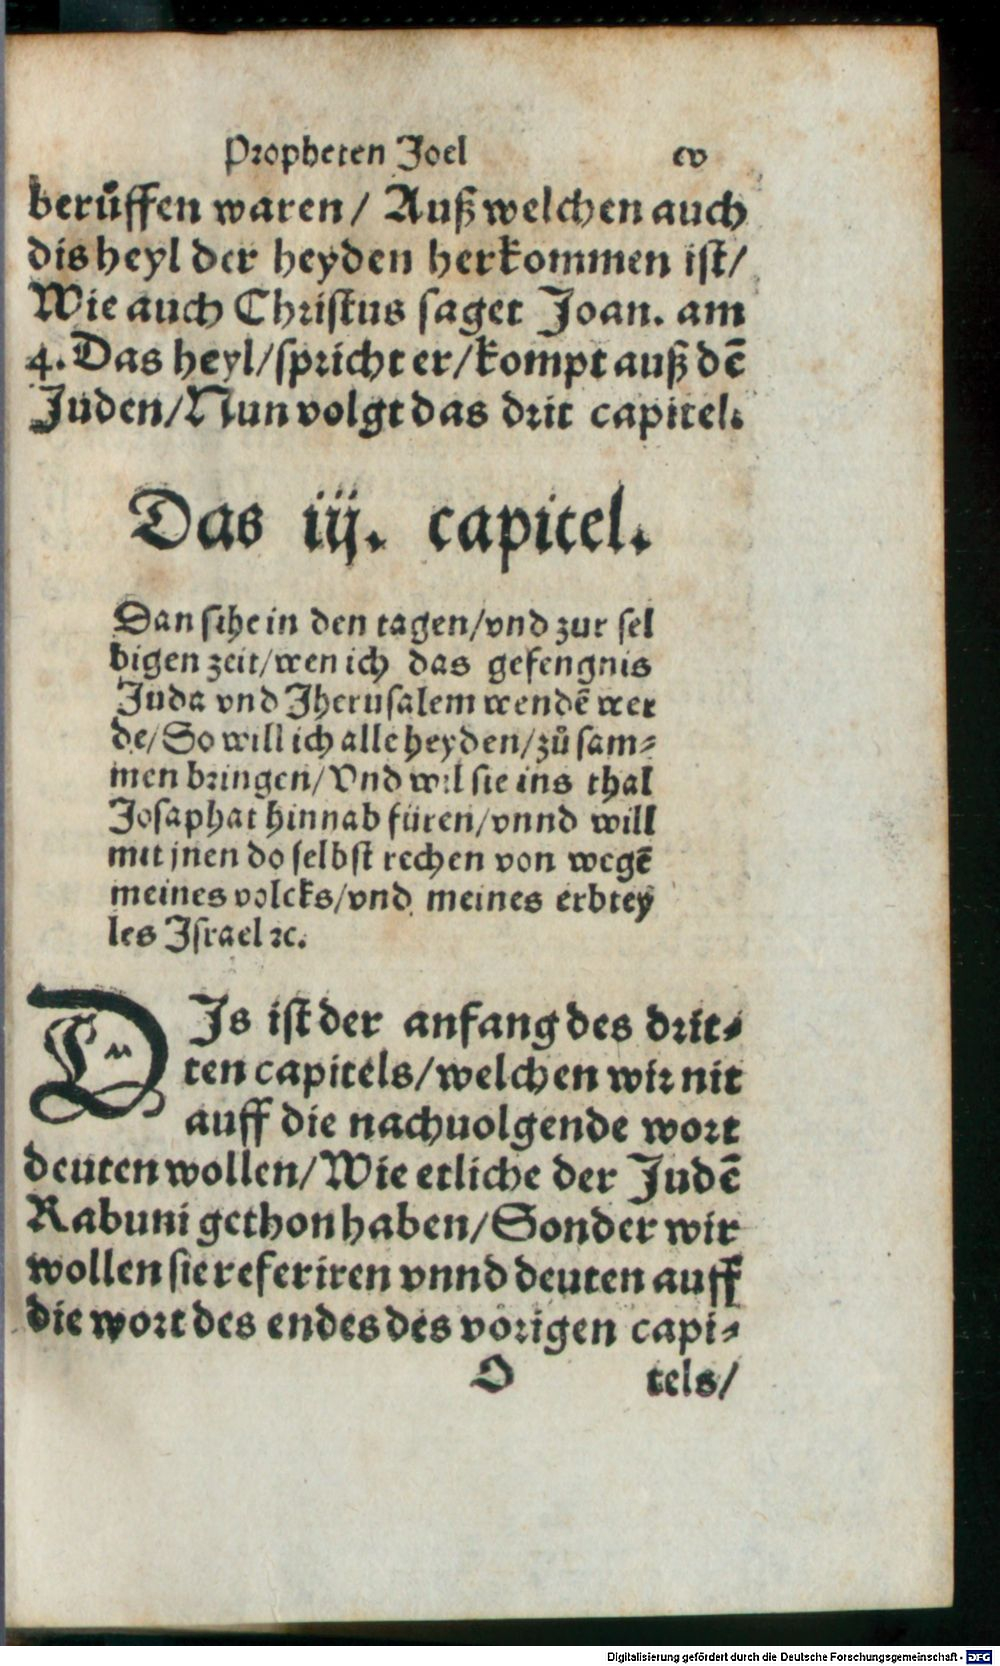 Propheten Joel cv
berůffen waren/ Auß welchen auch
dis heyl der heyden herkommen ist/
Wie auch Christus saget Joan. am
4. Das heyl/ spricht er/ kompt auß dē
Juden/ Nun volgt das drit capitel.
Das iij. capitel.
Dan sihe in den tagen/ vnd zur sel
bigen zeit/ wen ich das gefengnis
Juda vnd Jherusalem wendē wer
de/ So will ich alle heyden/ zů sam⸗
men bringen/ Vnd wil sie ins thal
Josaphat hinnab füren/ vnnd will
mit jnen do selbst rechen von wegē
meines volcks/ vnd meines erbtey
les Israel ꝛc.
DIs ist der anfang des drit⸗
ten capitels/ welchen wir nit
auff die nachuolgende wort
deuten wollen/ Wie etliche der Judē
Rabuni gethon haben/ Sonder wir
wollen sie referiren vnnd deuten auff
die wort des endes des vorigen capi⸗
O tels/
Digitalisierung gefördert durch die Deutsche Forschungsgemeinschaft - DFG